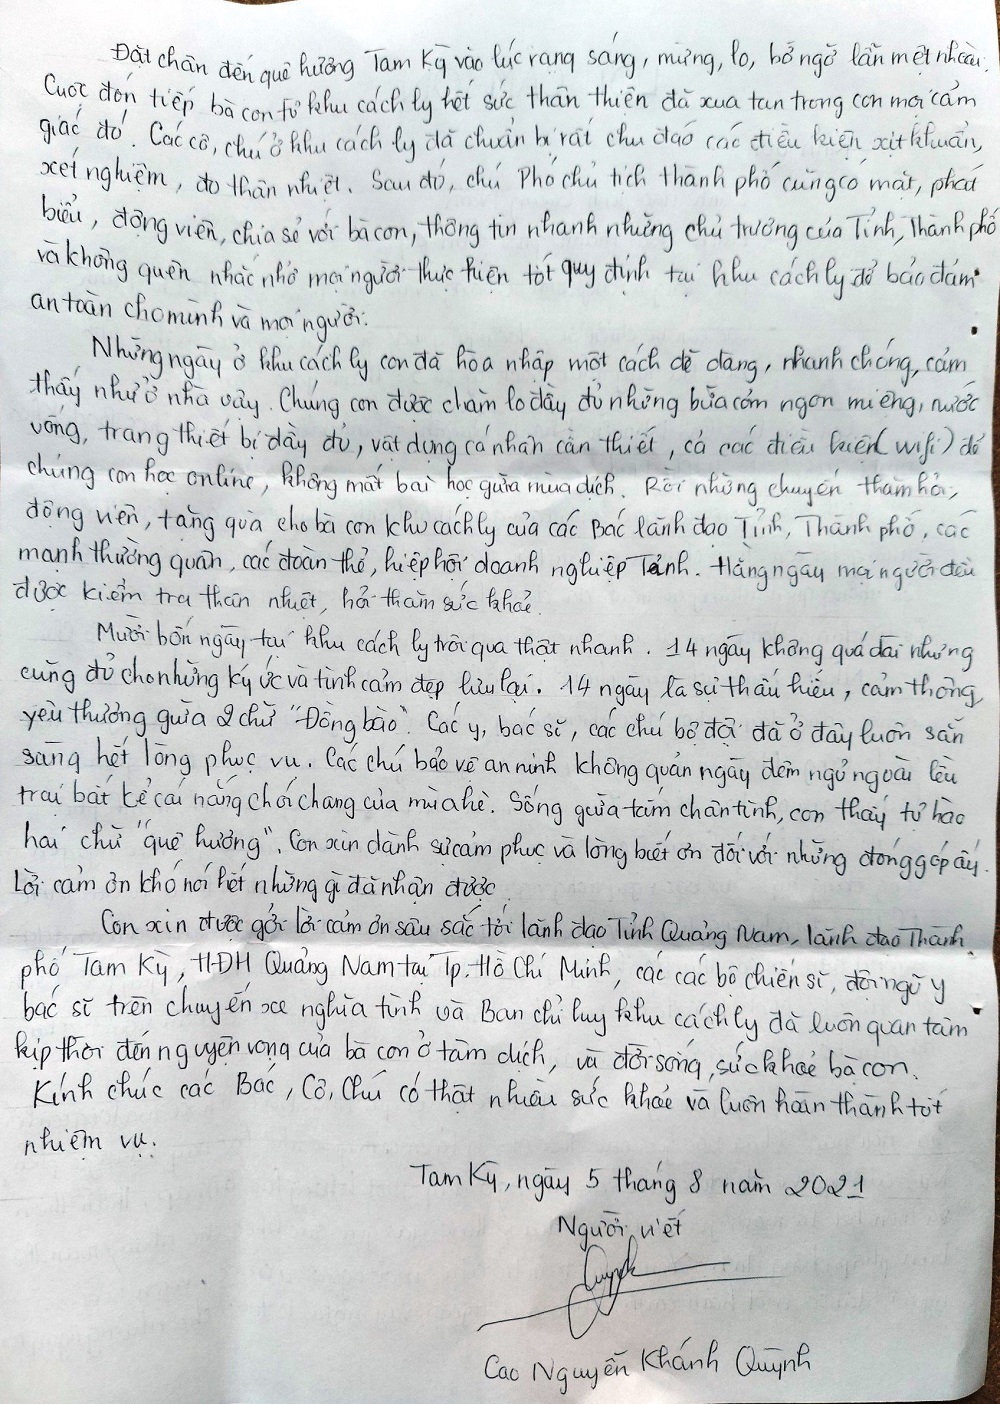 Đặt chân đến quê hương Tam Kỳ vào lúc rạng sáng, mừng, lo, bở ngỡ lẫn mệt nhoài.
Cuộc đón tiếp bà con từ khu cách ly hết sức thân thiện đã xua tan trong con mọi cảm
giác đó. Các cô, chú ở khu cách ly đã chuẩn bị rất chu đáo các điều kiện xịt khuẩn,
xét nghiệm, đo thân nhiệt. Sau đó, chú Phó chủ tịch thành phố cũng có mặt, phát
biểu, động viên, chia sẻ với bà con, thông tin nhanh những chủ trương của Tỉnh, Thành phố
và không quên nhắc nhở mọi người thực hiện tốt quy định tại khu cách ly để bảo đảm
an toàn cho mình và mọi người.
Những ngày ở khu cách ly con đã hòa nhập một cách dễ dàng, nhanh chóng, cảm
thấy như ở nhà vậy. Chúng con được chăm lo đầy đủ những bữa cơm ngon miệng, nước
uống, trang thiết bị đầy đủ, vật dụng cá nhân cần thiết, cả các điều kiện (wifi) để
chúng con học online, không mất bài học giữa mùa dịch. Rồi những chuyến thăm hỏi,
động viên, tặng quà cho bà con khu cách ly của các Bác lãnh đạo Tỉnh, Thành phố, các
mạnh thường quân, các đoàn thể, hiệp hội doanh nghiệp Tỉnh. Hằng ngày mọi người đều
được kiểm tra thân nhiệt, hỏi thăm sức khoẻ.
Mười bốn ngày tại khu cách ly trôi qua thật nhanh. 14 ngày không quá dài nhưng
cũng đủ cho những ký ức và tình cảm đẹp lưu lại. 14 ngày là sự thấu hiểu, cảm thông,
yêu thương giữa 2 chữ "Đồng bào". Các y, bác sĩ, các chú bộ đội đã ở đây luôn sẵn
sàng hết lòng phục vụ. Các chú bảo vệ an ninh không quản ngày đêm ngủ ngoài lều
trại bất kể cái nắng chói chang của mùa hè. Sống giữa tấm chân tình, con thấy tự hào
hai chữ "quê hương". Con xin dành sự cảm phục và lòng biết ơn đối với những đóng góp ấy.
Lời cảm ơn khó nói hết những gì đã nhận được.
Con xin được gởi lời cảm ơn sâu sắc tới lãnh đạo Tỉnh Quảng Nam, lãnh đạo Thành
phố Tam Kỳ, HĐH Quảng Nam tại Tp. Hồ Chí Minh, các các bộ chiến sĩ, đội ngũ y
bác sĩ trên chuyến xe nghĩa tình và Ban chỉ huy khu cách ly đã luôn quan tâm
kịp thời đến nguyện vọng của bà con ở tâm dịch, và đời sống, sức khoẻ bà con.
Kính chúc các Bác, Cô, Chú có thật nhiều sức khoẻ và luôn hoàn thành tốt
nhiệm vụ.
Tam Kỳ, ngày 5 tháng 8 năm 2021
Người viết
Quỳnh
Cao Nguyễn Khánh Quỳnh